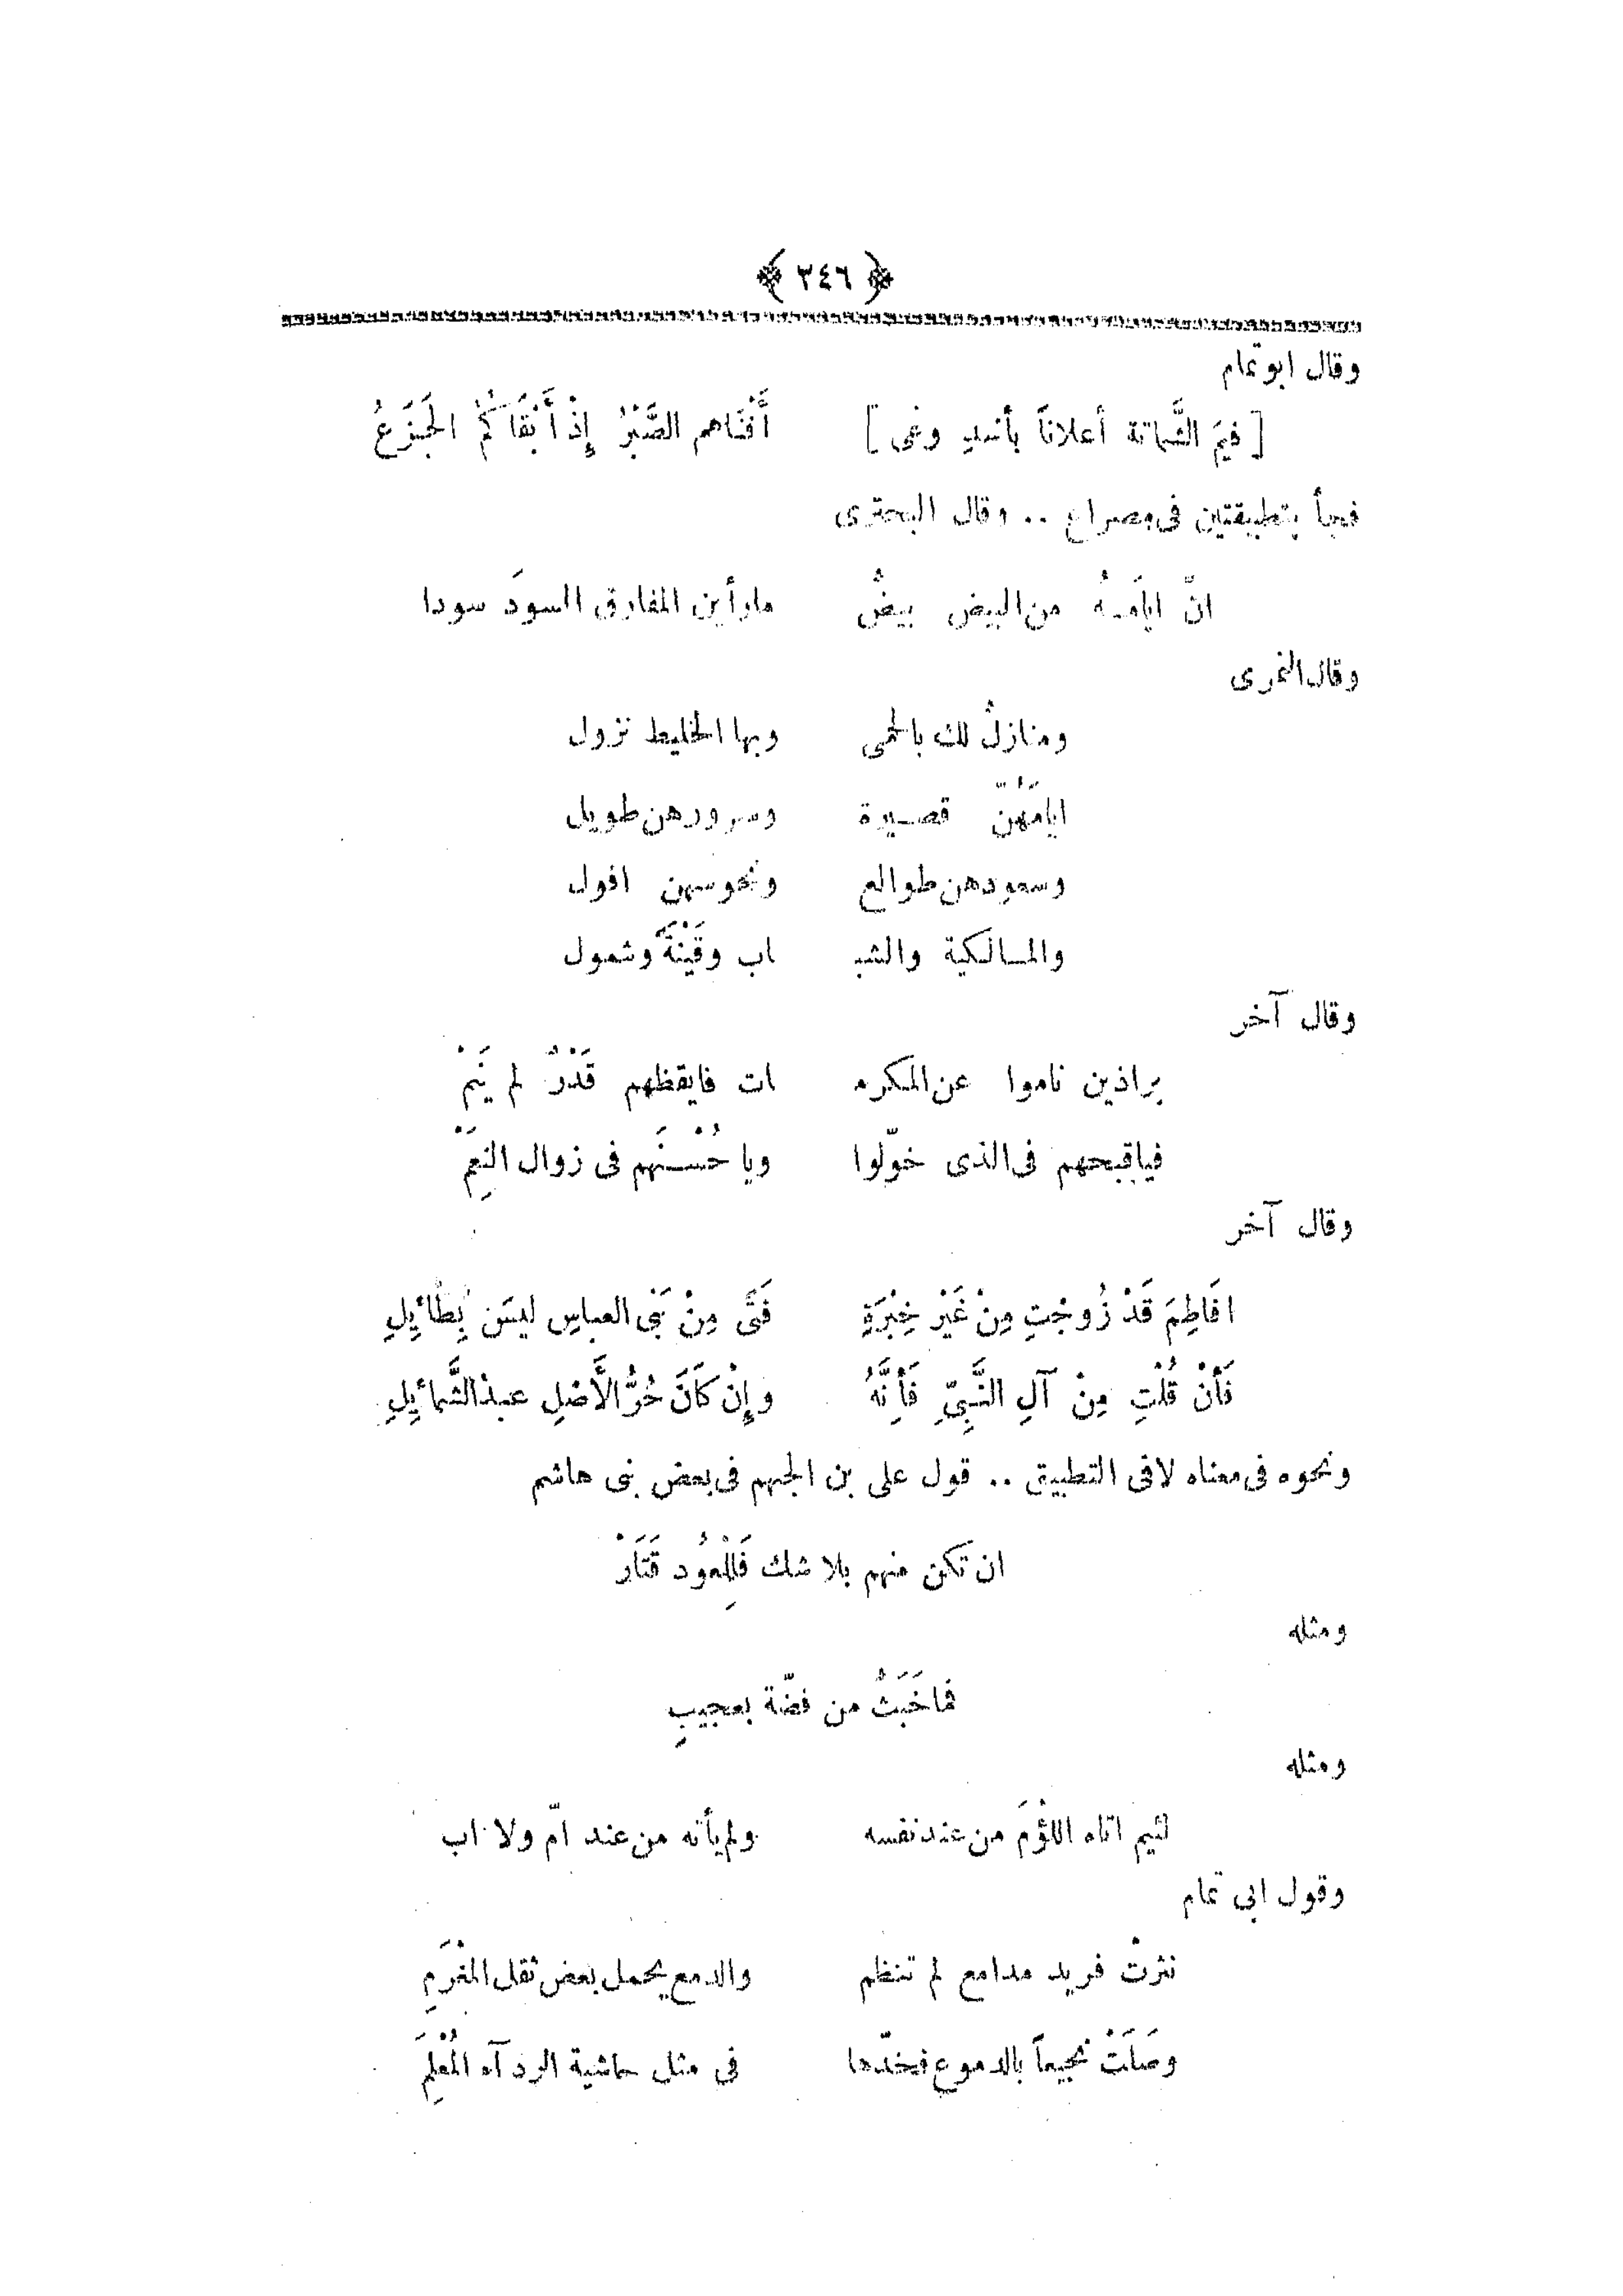 ﴿ ٣٤٦ ﴾
وقال ابوتمام
[ فيمَ الشَّماتة أعلاناً بأسدِ وغى ] أَفْنَاهم الصَّبْرُ إِذْ أَبْقَاكُمُ الْجَزَعُ
فجأ بتطبيقتين فى مصراع .. وقال البحترى
انّ ايامَهُ من البيض بيضٌ مارأين المفارق السودَ سودا
وقال النمرى
ومنازلٌ لك بالحمى وبها الخليط نزول
ايامُهُنّ قصيرة وسرورهن طويل
وسعودهن طوالع ونحوسهن افول
والمالكية والشبـ ـاب وقَيْنَةٌ وشمول
وقال آخر
براذين ناموا عن المكرمـ ـات فايقظهم قَدَرٌ لم يَنَمْ
فياقبحهم فى الذى خوّلوا ويا حُسْنَهم فى زوال النِعَمْ
وقال آخر
افَاطِمَ قَدْ زُوجْتِ مِنْ غَيْرِ خِبْرَةٍ فَتًى مِنْ بَنِى العباسِ ليسَ بِطَائِلِ
فَأنْ قُلْتِ مِنْ آلِ النَّبِىِّ فَأِنَّهُ وإِنْ كَانَ حُرَّ الأَصْلِ عبدُ الشَّمائِلِ
ونحوه فى معناه لا فى التطبيق .. قول على بن الجهم فى بعض بنى هاشم
ان تكن منهم بلا شك فَلِلْعُودِ قَتَارْ
ومثله
فما خَبَثٌ من فضّة بعجيبِ
ومثله
لئيم اتاه اللؤمَ من عند نفسه ولم يأته من عند امّ ولا اب
وقول ابى تمام
نثرتْ فريد مدامع لم تنظم والدمع يحمل بعض ثقل المغْرَمِ
وصَلَتْ نجيعاً بالدموع فخدّها فى مثل حاشية الردآء المُعْلَمِ